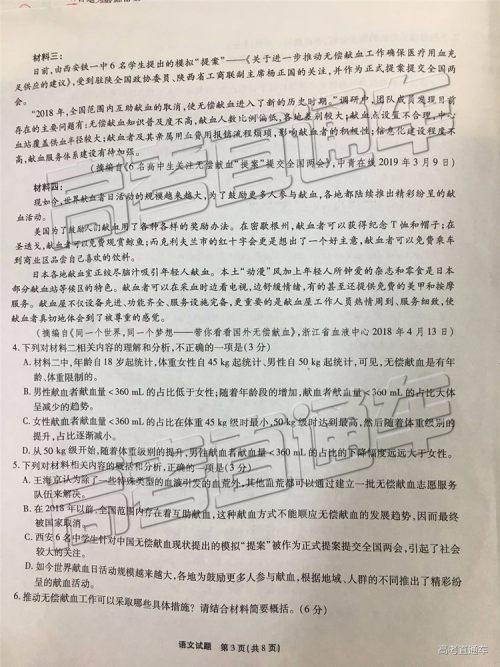 材料三：
日前，由西安铁一中6名学生提出的模拟“提案”——《关于进一步推动无偿献血工作确保医疗用血充
足供应的建议》，受到驻陕全国政协委员、陕西省工商联副主席杨正国的关注，并作为正式提案提交全国两
会。
“2018年，全国范围内互助献血的取消，使无偿献血进入了新的历史时期。”调研中，团队成员发现目前
存在的主要问题有：无偿献血知识普及度不高，献血人数比例偏低，各地差别较大；献血点设置不合理，中心
血站覆盖供血半径较大；献血者及其亲属用血费用报销流程烦琐，影响献血者的积极性；信息化建设程度不
高，献血服务体系建设有待加强。
（摘编自《6名高中生关注无偿献血“提案”提交全国两会》，中青在线2019年3月9日）
材料四：
现如今，世界献血者日活动的规模越来越大，为了鼓励更多人参与献血，各地都陆续推出精彩纷呈的献
血活动。
美国为了鼓励人们献血用了各种各样的奖励办法。在密歇根州，献血者可以获得纪念T恤和帽子；在
圣迭戈，献血者可以免费观赏鲸鱼；而克利夫兰市的红十字会更是想出了一个好主意，献血者可以免费乘车
到商业区品尝自己喜欢的饮料。
日本各地献血室正绞尽脑汁吸引年轻人献血。本土“动漫”风加上年轻人所钟爱的杂志和零食是日本
部分献血站等候区的特色。献血者可以在采血时边看电视，边舒缓情绪，有的甚至还提供免费的美甲和按摩
服务。献血屋不仅设备先进、功能齐全、服务设施完备，更重要的是献血屋工作人员热情周到、服务细致，使
献血者真切地体会到了被尊重的感觉。
（摘编自《同一个世界，同一个梦想——带你看看国外无偿献血》，浙江省血液中心2018年4月13日）
4．下列对材料二相关内容的理解和分析，不正确的一项是（3分）
A．材料二中，年龄自18岁起统计，体重女性自45 kg起统计、男性自50 kg起统计，可见，无偿献血是有年
龄、体重限制的。
B．男性献血者献血量<360 mL的占比低于女性；随着年龄段的增加，献血者献血量<360 mL的占比大体
呈减少的趋势。
C．女性献血者献血量<360 mL的占比在体重45 kg级时最小，50 kg级时达到最高，然后随着体重级别的
提升，占比逐渐减小。
D．从50 kg级开始，随着体重级别的提升，男性献血者献血量<360 mL的占比的下降幅度远远大于女性。
5．下列对材料相关内容的概括和分析，正确的一项是（3分）
A．王海京认为除了一些特殊类型的血液引发的血荒外，其他血荒都可以通过建立一批无偿献血志愿服务
队伍来解决。
B．在2018年以前，全国范围内存在着互助献血，这种献血方式不能顺应无偿献血的发展趋势，因而最终
被国家取消。
C．西安6名中学生针对中国无偿献血现状提出的模拟“提案”被作为正式提案提交全国两会，引起了社会
较大的关注。
D．如今世界献血日活动规模越来越大，各地为鼓励更多人参与献血，根据地域、人群的不同推出了精彩纷
呈的献血活动。
6．推动无偿献血工作可以采取哪些具体措施？请结合材料简要概括。（6分）
语文试题 第3页（共8页）
高考直通车
高考直通车
高考直通车
高考直通车